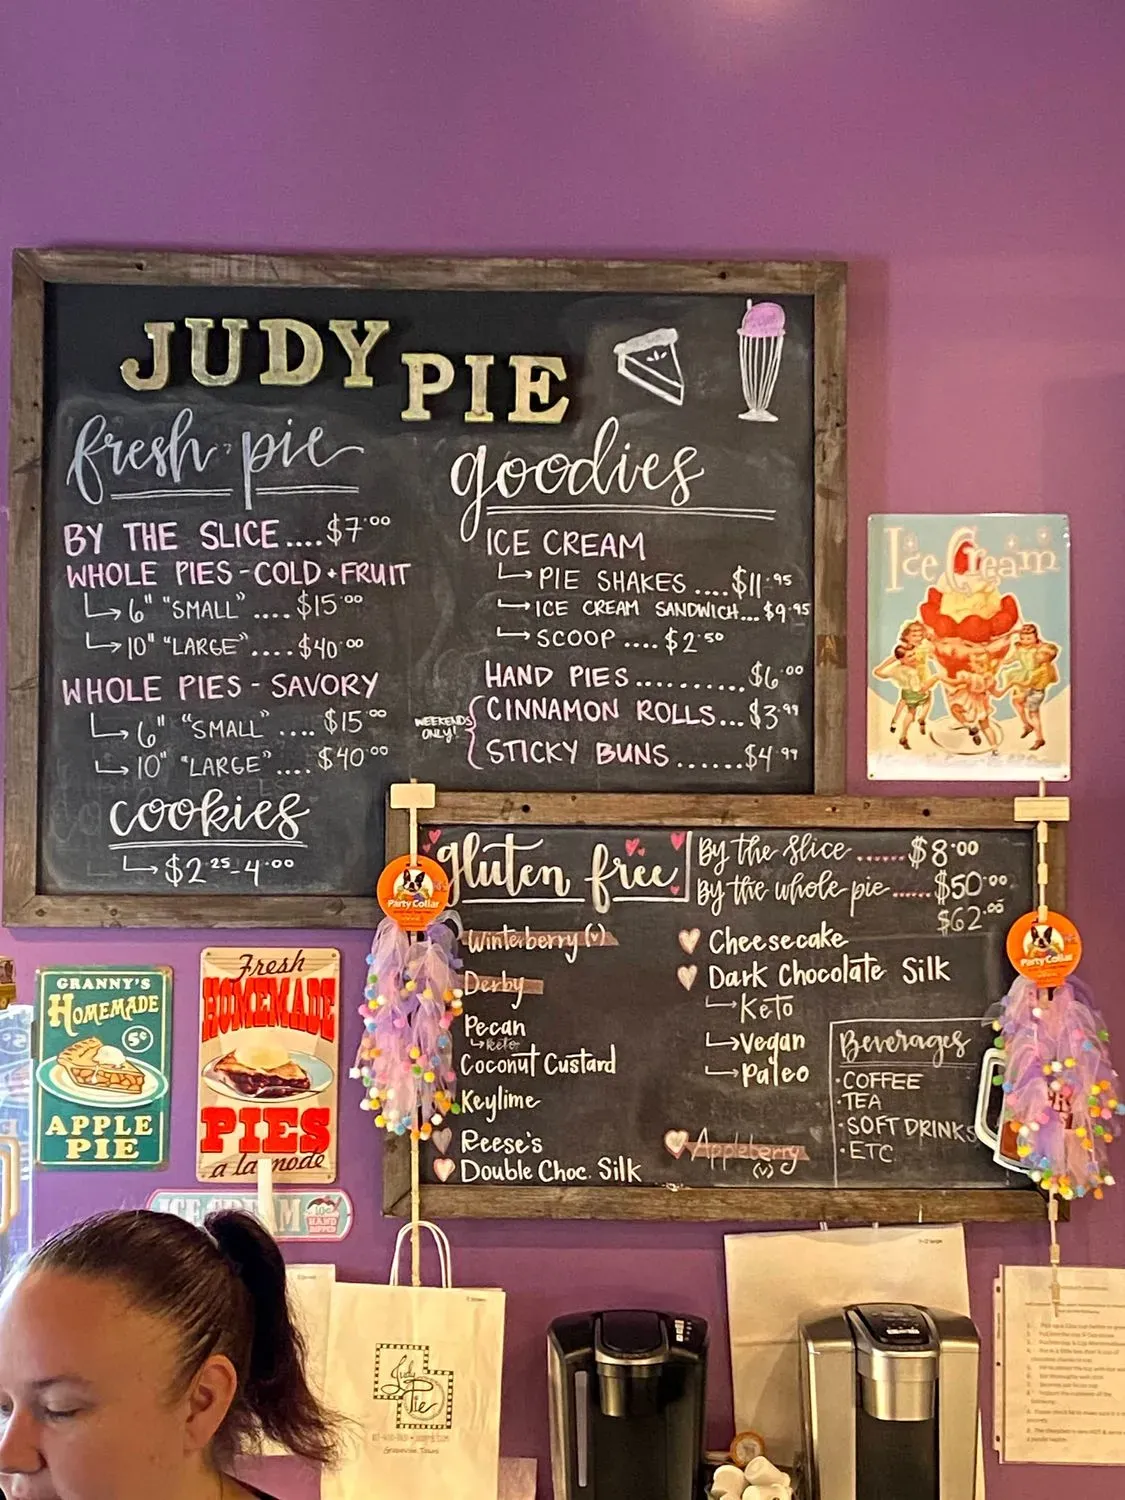 JUDY PIE
fresh pie
BY THE SLICE....$7.00
WHOLE PIES-COLD+FRUIT
6" "SMALL" ....$15.00
10" "LARGE"....$40.00
WHOLE PIES - SAVORY
6" "SMALL" ....$15.00
10" "LARGE"....$40.00
cookies
$2.25-4.00
goodies
ICE CREAM
PIE SHAKES ....$11.95
ICE CREAM SANDWICH...$9.95
SCOOP ....$2.50
HAND PIES..........$6.00
WEEKENDS
ONLY!
CINNAMON ROLLS...$3.99
STICKY BUNS ......$4.99
Ice Cream
gluten free
By the slice ......$8.00
By the whole pie......$50.00
$62.00
Winterberry (v)
Derby
Pecan
keto
Coconut Custard
Keylime
Reese's
Double Choc. Silk
Cheesecake
Dark Chocolate Silk
Keto
Vegan
Paleo
Appleberry
(v)
Beverages
·COFFEE
·TEA
·SOFT DRINKS
·ETC
Party Collar
Party Collar
GRANNY'S
HOMEMADE
5¢
APPLE
PIE
Fresh
HOMEMADE
PIES
a la mode
ICE CREAM
10¢
HAND
DIPPED
Judy
Pie
Grapevine, Texas